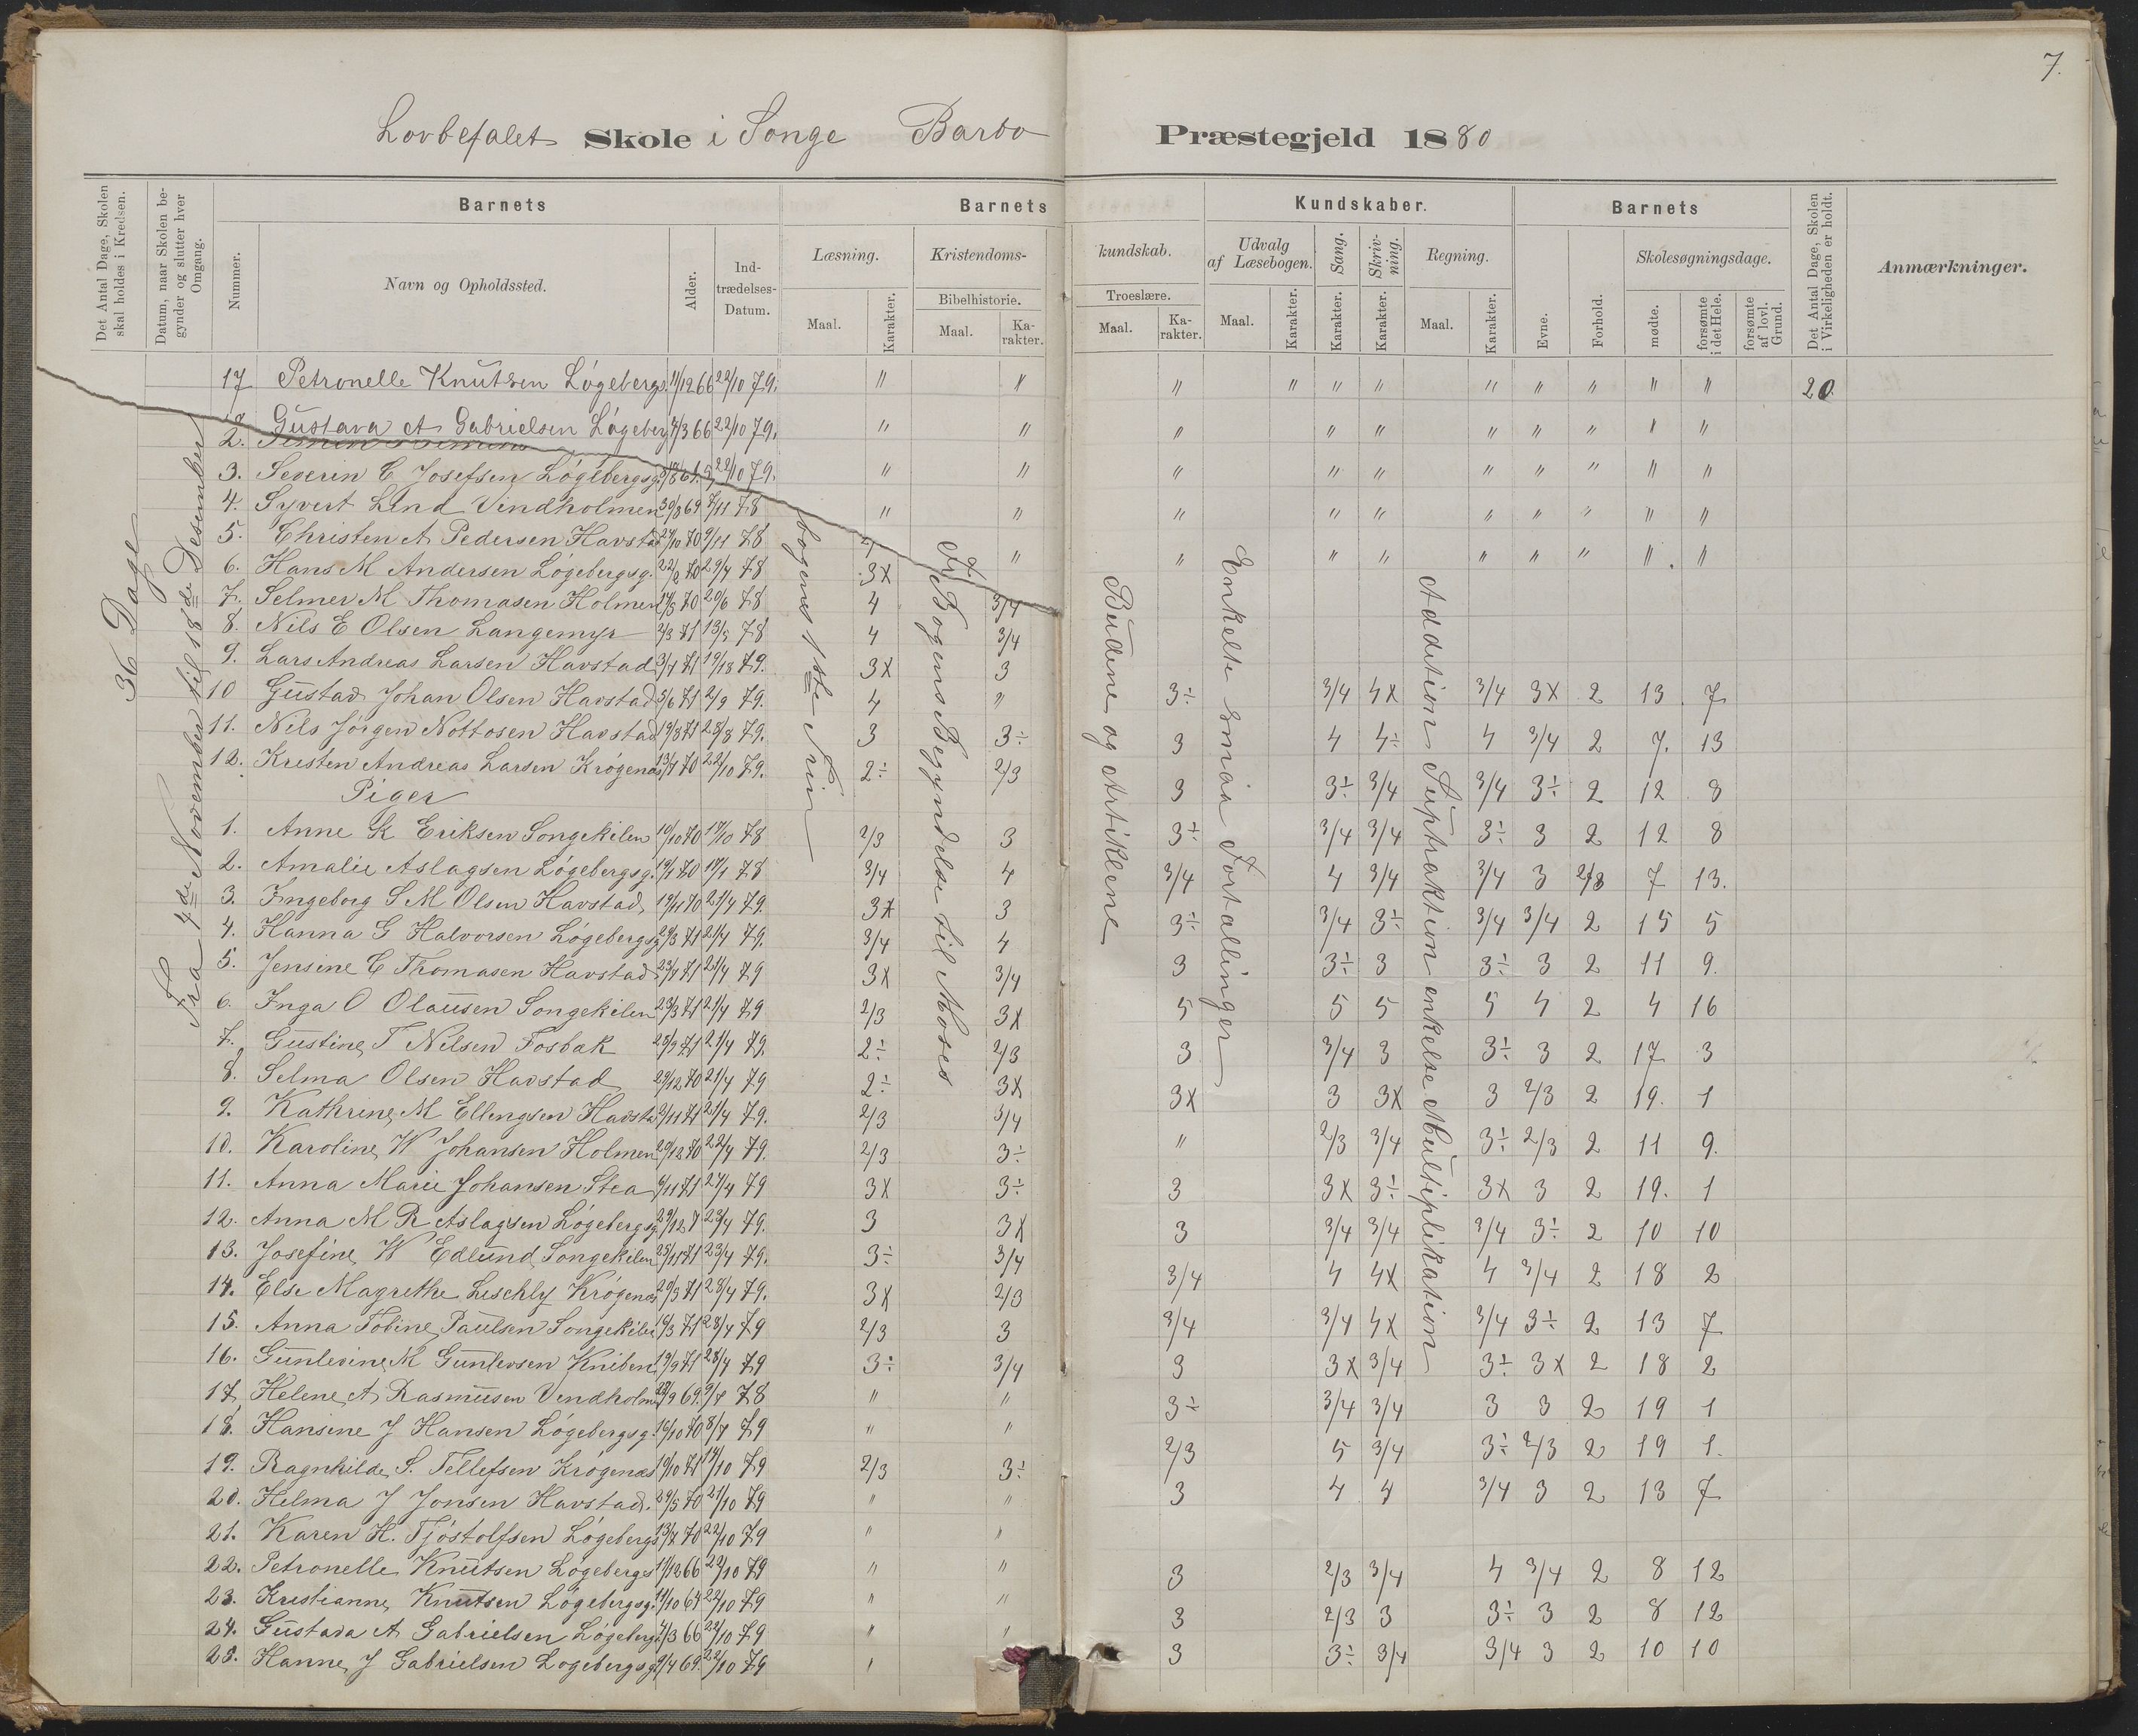 7.
Lovbefalet Skole i Songe Barbo Præstegjeld 1880
Det Antal Dage, Skolen skal holdes i Kredsen.
Datum, naar Skolen begynder og slutter hver Omgang.
Barnets
Nummer.
Navn og Opholdssted.
Alder.
Indtrædelses-Datum.
Barnets Kundskaber.
Læsning.
Maal.
Karakter.
Kristendomskundskab.
Bibelhistorie.
Maal.
Karakter.
Troeslære.
Maal.
Karakter.
Udvalg af Læsebogen.
Maal.
Karakter.
Sang.
Karakter.
Skrivning.
Karakter.
Regning.
Maal.
Karakter.
Barnets
Evne.
Forhold.
Skolesøgningsdage.
mødte.
forsømte i det Hele.
forsømte af lovl. Grund.
Det Antal Dage, Skolen i Virkeligheden er holdt.
Anmærkninger.
36 Dage
Fra 4de November til 18de Desember
17 Petronelle Knutsen Løgebergs. 11/12 66 22/10 79. " " " " " " " " " " " 20.
Gustava A Gabrielsen Løgeberg 4/3 66 22/10 79. " " " " " " " " " "
2.
3. Severin C Josefsen Løgebergsg. 22/10 79. " " " " " " " " " "
4. Syvert Lind Vindholmen 30/8 69 7/11 78 " " " " " " " " " "
5. Christen A Pedersen Havstad 27/10 70 9/11 78
6. Hans M Andersen Løgebergsg. 22/2 70 29/4 78 3x " " " " " " " " "
7. Selmer M Thomasen Holmen 20/6 78 4 3/4
8. Nils E Olsen Langemyr 2/3 71 13/5 78 4 3/4
9. Lars Andreas Larsen Havstad 3/4 71 79. 3x 3
10 Gustav Johan Olsen Havstad 5/6 71 2/9 79. 4 "
11. Nils Jørgen Nottosen Havstad 19/8 71 28/8 79. 3 3÷
12. Kristen Andreas Larsen Krøgenæs 13/7 70 22/10 79. 2÷ 2/3
Piger
1. Anne K Eriksen Songekilen 10/10 70 17/10 78 2/3 3
2. Amalie Aslagsen Løgebergsg. 19/1 70 78 3/4 4
3. Ingeborg S M Olsen Havstad 19/11 70 21/4 79. 3x 3
4. Hanna G Halvorsen Løgebergsg 29/3 71 21/4 79. 3/4 4
5. Jensine C Thomasen Havstad 23/4 71 21/4 79 3x 3/4
6. Inga O Olausen Songekilen 23/3 71 21/4 79 2/3 3x
7. Gustine T Nilsen Fosbak 25/9 71 21/4 79 2÷ 2/3
8. Selma Olsen Havstad 29/12 70 21/4 79 2÷ 3x
9. Kathrine M Ellengsen Havsta 2/11 71 21/4 79. 2/3 3/4
10. Karoline W Johansen Holmen 29/12 70 22/4 79. 2/3 3÷
11. Anna Marie Johansen Stea 9/11 71 21/4 79 3x 3÷
12. Anna M R Aslagsen Løgebergsg 29/12 7 23/4 79. 3 3x
13. Josefine W Edlund Songekilen 25/11 71 23/4 79. 3÷ 3/4
14. Else Magrethe Leschly Krøgenæs 20/3 71 28/4 79. 3x 2/3
15. Anna Tobine Paulsen Songekilen 19/3 71 28/4 79 2/3 3
16. Gunlevine M Gunlevsen Kniben 19/9 71 28/4 79 3÷ 3/4
17. Helene A Rasmusen Vindholm 69. 9/7 78 " "
18. Hansine J Hansen Løgebergsg. 16/10 70 8/7 79 " "
19. Ragnhilde S. Tellefsen Krøgenæs 19/10 71 14/10 79 2/3 3÷
20. Helma J Jonsen Havstad. 29/5 70 21/10 79 " "
21. Karen H. Tjøstolfsen Løgebergs 13/7 70 22/10 79 " "
22. Petronelle Knutsen Løgebergs 11/12 66 22/10 79 " "
23. Kristianne Knutsen Løgebergsg. 11/10 64 22/10 79 " "
24. Gustava A Gabrielsen Løgebergs 4/3 66 22/10 79 " "
25. Hanne J Gabrielsen Løgebergsg 9/4 69. 22/10 79 "
bogens 1ste Trin
Fr Bogens Begyndelse til Moses
Budene og Artiklene
Enkelte smaa Fortællinger
Addition Suptraktion enkelte Multiplikation
3÷ 3/4 4x 3/4 3x 2 13 7
3 4 4÷ 4 3/4 2 7. 13
3 3÷ 3/4 3/4 3÷ 2 12 8
3÷ 3/4 3/4 3÷ 3 2 12 8
3/4 4 3/4 3/4 3 2/3 7 13.
3÷ 3/4 3÷ 3/4 3/4 2 15 5
3 3÷ 3 3÷ 3 2 11 9.
5 5 5 5 4 2 4 16
3 3/4 3 3÷ 3 2 17 3
3x 3 3x 3 2/3 2 19. 1
" 2/3 3/4 3÷ 2/3 2 11 9.
3 3x 3÷ 3x 3 2 19. 1
3 3/4 3/4 3/4 3÷ 2 10 10
3/4 4 4x 4 3/4 2 18 2
3/4 3/4 4x 3/4 3÷ 2 13 7
3 3x 3/4 3÷ 3x 2 18 2
3÷ 3/4 3/4 3 3 2 19 1
2/3 5 3/4 3÷ 2/3 2 19 1.
3 4 4 3/4 3 2 13 7
3 2/3 3/4 4 3/4 2 8 12
3 2/3 3 3÷ 3 2 8 12
3 3÷ 3/4 3/4 3 2 10 10